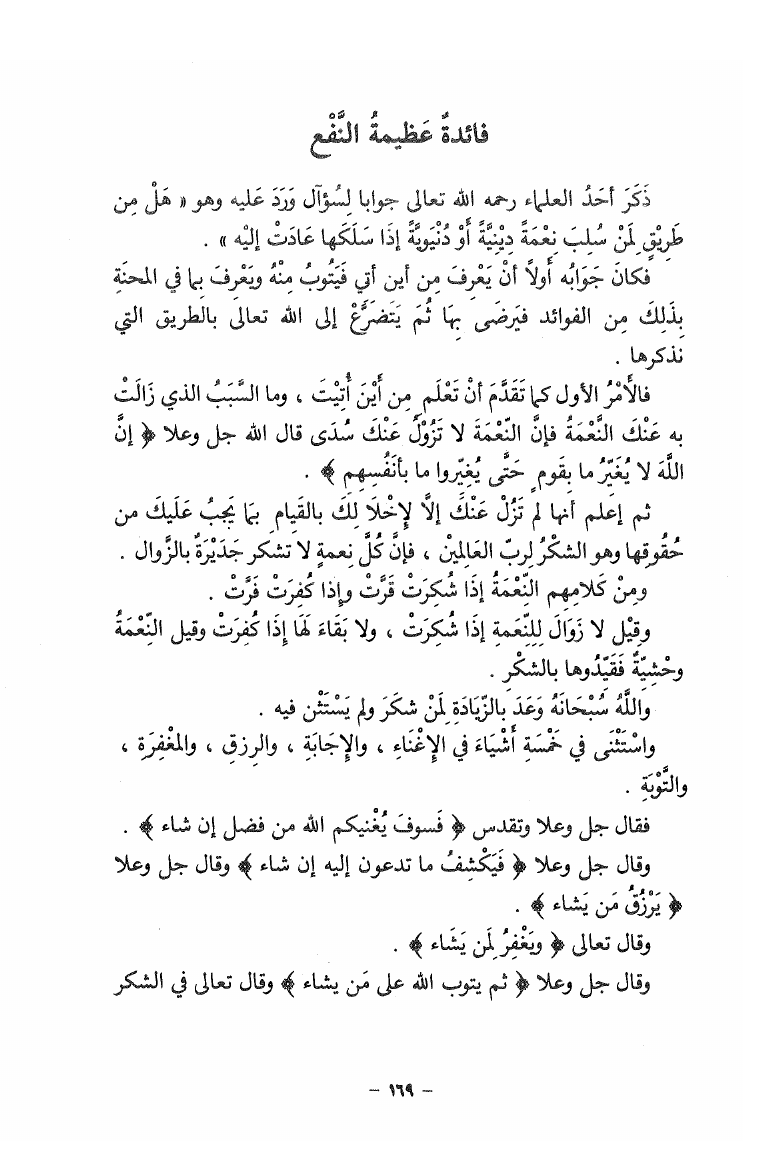 فائدةٌ عَظيمةُ النَّفْع
ذَكَرَ أحَدُ العلماء رحمه الله تعالى جوابا لِسُؤآل وَرَدَ عَليه وهو « هَلْ مِن
طَرِيْقٍ لِمَنْ سُلِبَ نِعْمَةً دِيْنِيَّةً أَوْ دُنْيَوِيَّةً إذَا سَلَكَها عَادَتْ إليْه » .
فكانَ جَوَابُه أولاً أنْ يَعْرِفَ مِن أين أتي فَيَتُوبُ مِنْهُ ويَعْرِفَ بما في المحنَةِ
بِذَلِكَ مِن الفوائد فيَرضَى بِهَا ثُمَ يَتَضرَّعْ إلى الله تعالى بالطريق التي
نذكرها .
فالأَمْرُ الأول كما تَقَدَّمَ أنْ تَعْلَم مِن أَيْنَ أُتِيْتَ ، وما السَّبَبُ الذي زَالَتْ
به عَنْكَ النَّعْمَةُ فإنَّ النّعْمَةَ لا تَزُوْلُ عَنْكَ سُدَى قال الله جل وعلا ﴿ إنَّ
اللَّهَ لا يُغَيِّرُ ما بِقَوم حَتَّى يُغيِّروا ما بأنْفُسِهِم ﴾ .
ثم إعلم أنها لم تَزُلْ عَنْكَ إلَّا لِإخْلَا لِكَ بالقَيام بمَا يَجِبُ عَلَيكَ من
حُقُوقِها وهو الشكْرُ لِربّ العَالمِينْ ، فإنَّ كُلَّ نِعمةٍ لا تشكر جَدَيْرَةٌ بالزَّوال .
ومِنْ كَلامِهِم النِّعْمَةُ إذَا شُكِرَتْ قَرَّتْ وإذا كُفِرَتْ فَرَّتْ .
وقِيْل لا زَوَالَ لِلنِّعَمةِ إذَا شُكِرَتْ ، ولا بَقَاءَ لَهَا إذَا كُفِرَتْ وقيل النِّعْمَةُ
وحْشيّةٌ فَقَيِّدُوها بالشكْرِ .
واللَّهُ سُبْحَانَهُ وَعَدَ بالزّيَادَةِ لِمَنْ شكَرَ ولم يَسْتَثْن فيه .
واسْتَثْنَى في خَمْسَةِ أَشْيَاءَ في الإغْنَاءِ ، والإجَابَةِ ، والرِزقِ ، والمَغْفِرَةِ ،
والتَّوْبَةِ .
فقال جل وعلا وتقدس ﴿ فَسوفَ يُغْنيكم الله من فضل إن شاء ﴾ .
وقال جل وعلا ﴿ فَيَكْشِفُ ما تدعون إليه إن شاء ﴾ وقال جل وعلا
﴿ يَرْزُقُ مَن يَشاء ﴾ .
وقال تعالى ﴿ ويَغْفِرُ لِمَن يَشَاء ﴾ .
وقال جل وعلا ﴿ ثم يتوب الله على مَن يشاء ﴾ وقال تعالى في الشكر
– ١٦٩ –